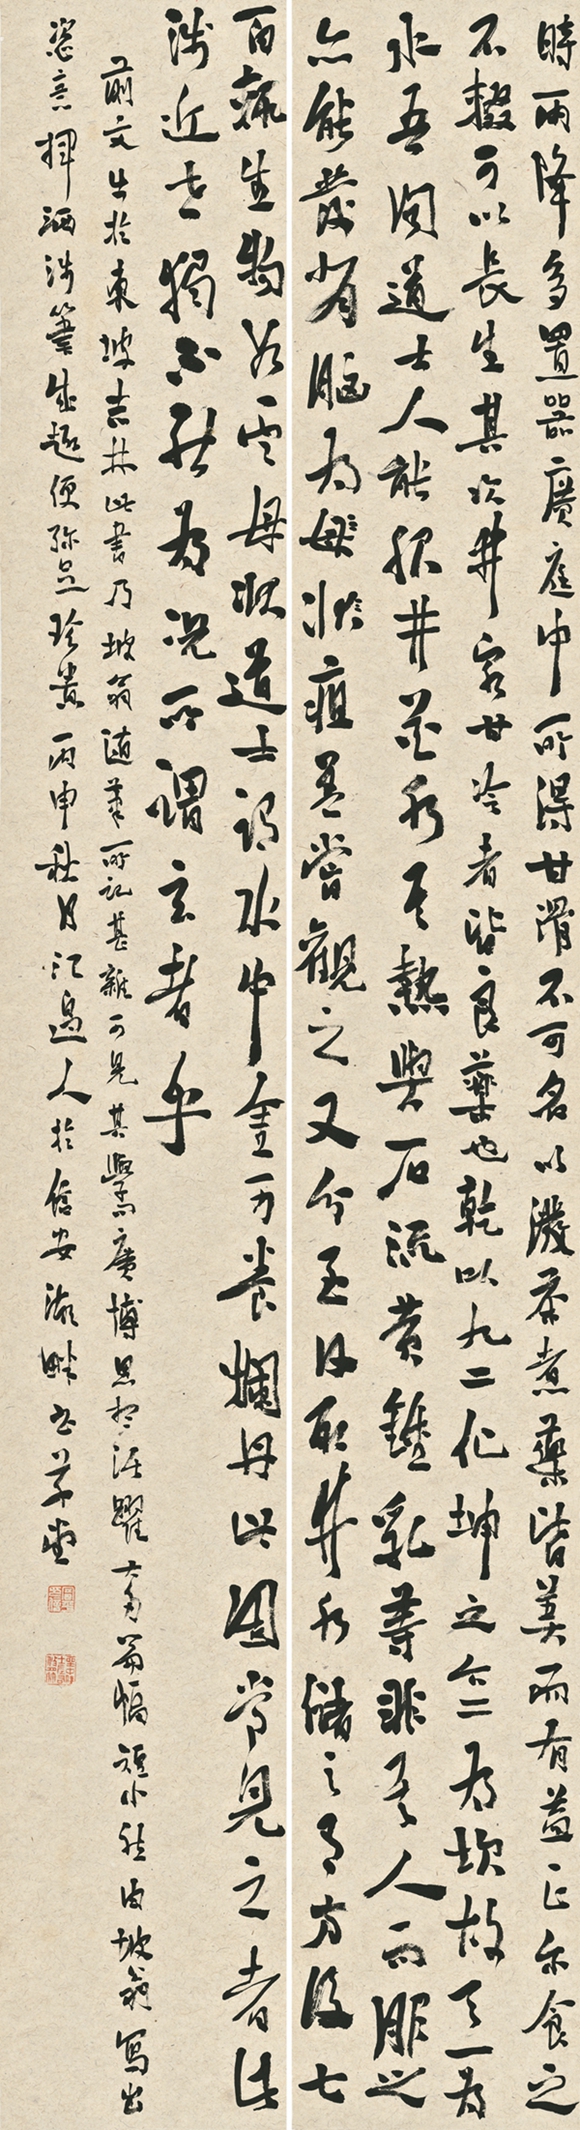 時雨降多置器廣庭中所得甘滑不可名以潑茶煮藥皆美而有益正尔食之
不輟可以長生其次井泉甘冷者皆良藥也乾以九二化坤之六二為坎故天一為
水吾聞道士人能服井花水其熱與石流黃鍾乳等非其人而服之
亦能發背腦為疽盖嘗觀之又分至日取井水儲之有方後七
日輒生物如雲母狀道士謂水中金可養煉丹此固常見之者此
淺近世獨不能為況所謂玄者乎
前文出於東坡志林此書乃坡翁隨筆所記甚雜可見其學廣博思想活躍文多篇幅短小然由坡翁寫出
恣意揮洒涉筆成趣便彌足珍貴丙申秋月江邊人於信安湖畔